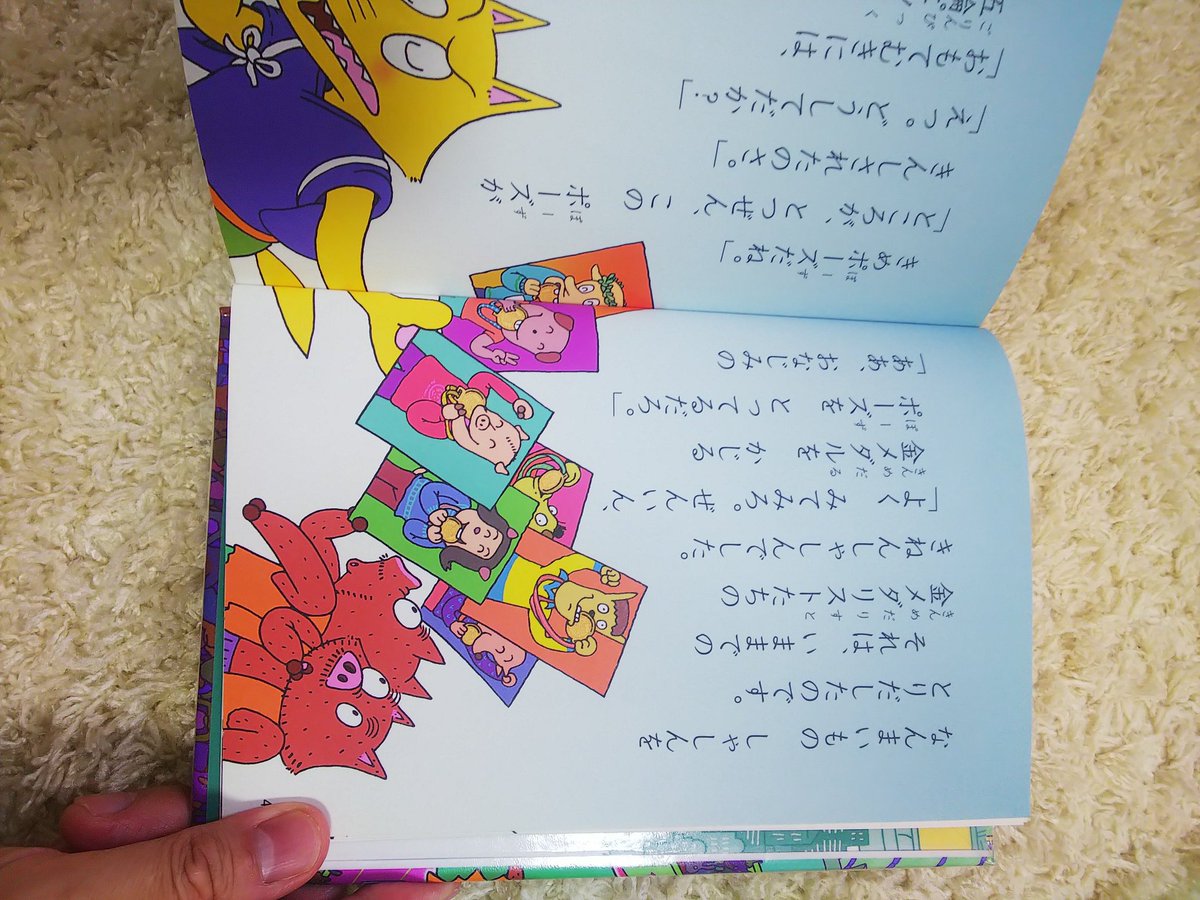 なんまいもの しゃしんを
とりだしたのです。
それは、いままでの
金メダリストたちの
きねんしゃしんでした。
「よく みてみろ。ぜんいん、
金メダルを かじる
ポーズを とってるだろ。」
「ああ、おなじみの
きめポーズだね。」
「ところが、とつぜん、この ポーズが
きんしされたのさ。」
「えっ。どうしてだか?」
「おもてむきには、
五輪